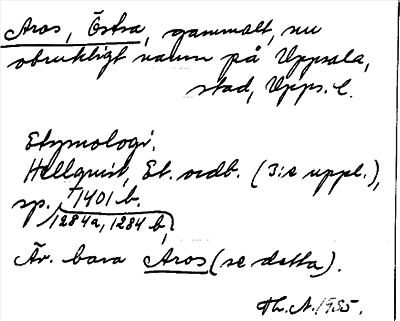 Aros, Östra, gammalt, nu
obrukligt namn på Uppsala,
stad, Upps. l.
Etymologi.
Hellquist, Et. ordb. (3:e uppl.),
sp. †1401 b.
1284a, 1284 b,
Äv. bara Aros (se detta).
Th. A. 1955.